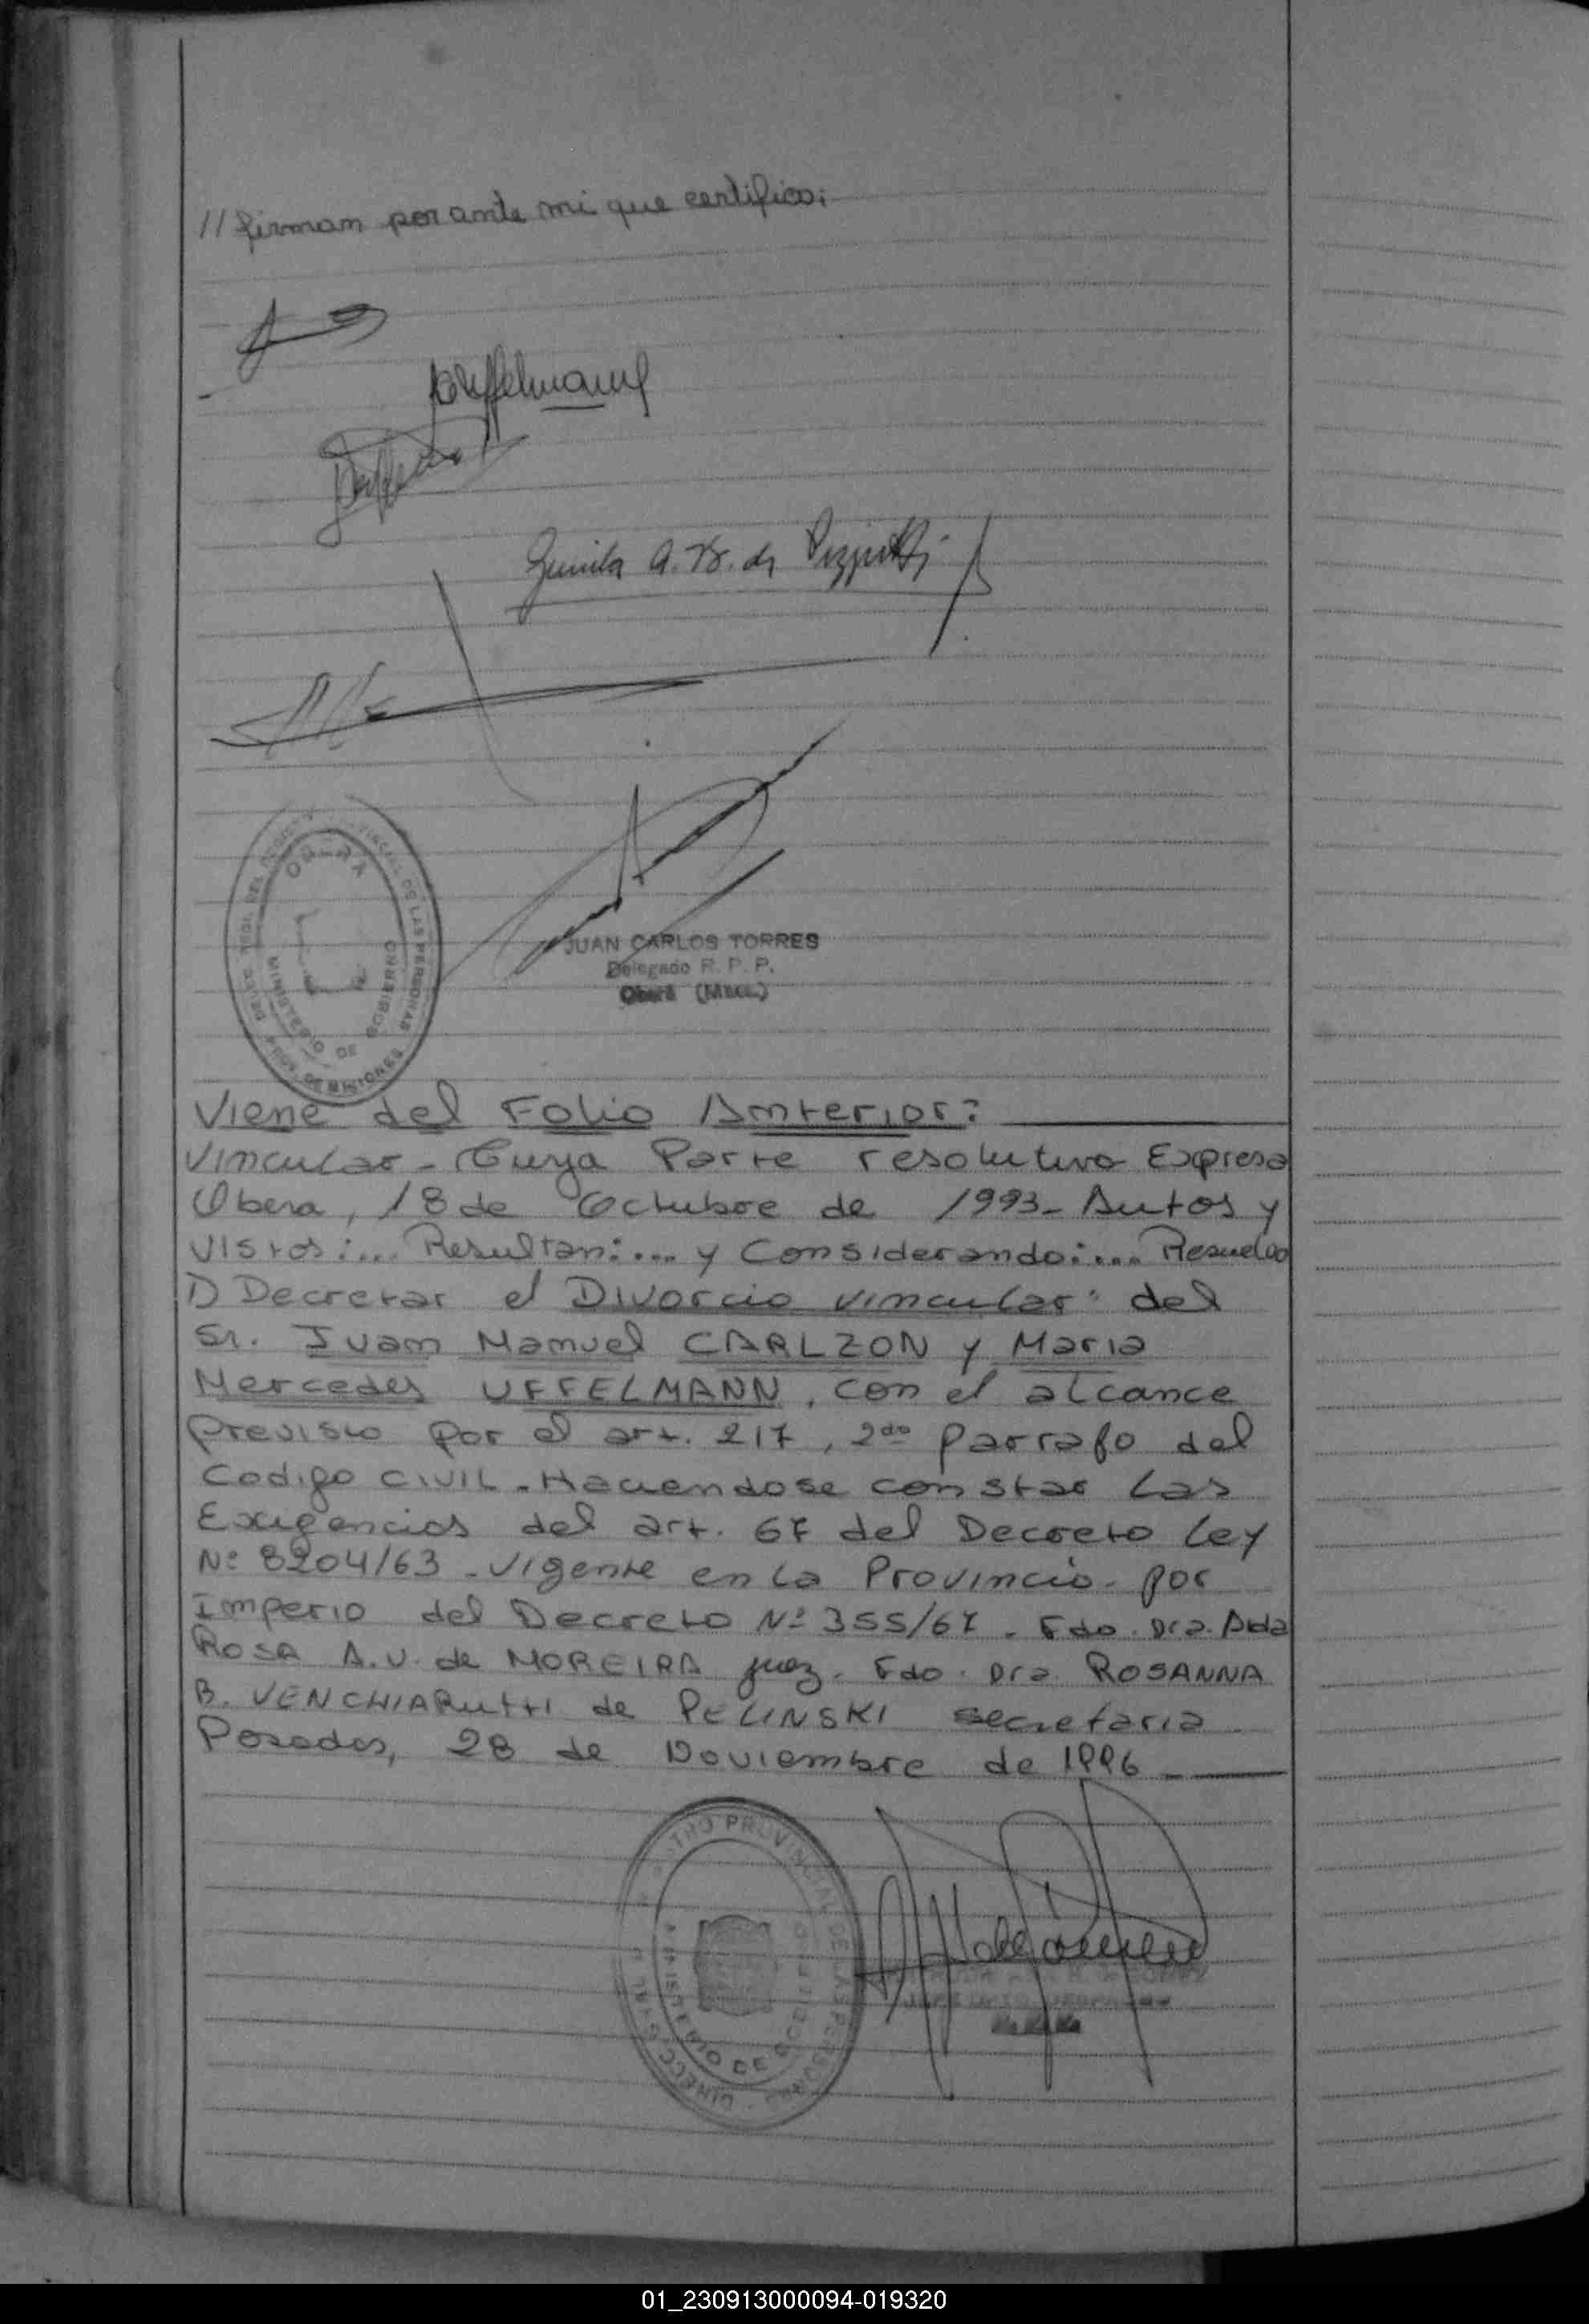 // firman por ante mi que certifico;
Uffelmann
JUAN CARLOS TORRES
Delegado R. P. P.
Oberá (Mnes.)
OBERA
MINISTERIO DE GOBIERNO
DE LAS PERSONAS
DE MISIONES
Viene del Folio Anterior:
Vincular - Cuya Parte resolutiva Expresa
Obera, 18 de Octubre de 1993 - Autos y
Vistos:... Resultan:... y Considerando:... Resuelvo
1) Decretar el Divorcio vincular del
Sr. Juan Manuel CARLZON y Maria
Mercedes UFFELMANN, con el alcance
previsto por el art. 217, 2do parrafo del
Codigo CIVIL. Haciendose constar las
Exigencias del art. 67 del Decreto Ley
Nº 8204/63 - Vigente en la Provincia - por
Imperio del Decreto Nº 355/67 - Fdo. Dra. Aida
ROSA A.V. de MOREIRA juez. Fdo. Dra. ROSANNA
B. VENCHIARUTTI de PELINSKI secretaria
Posadas, 28 de Noviembre de 1996 -
REGISTRO PROVINCIAL DE LAS PERSONAS
MINISTERIO DE GOBIERNO